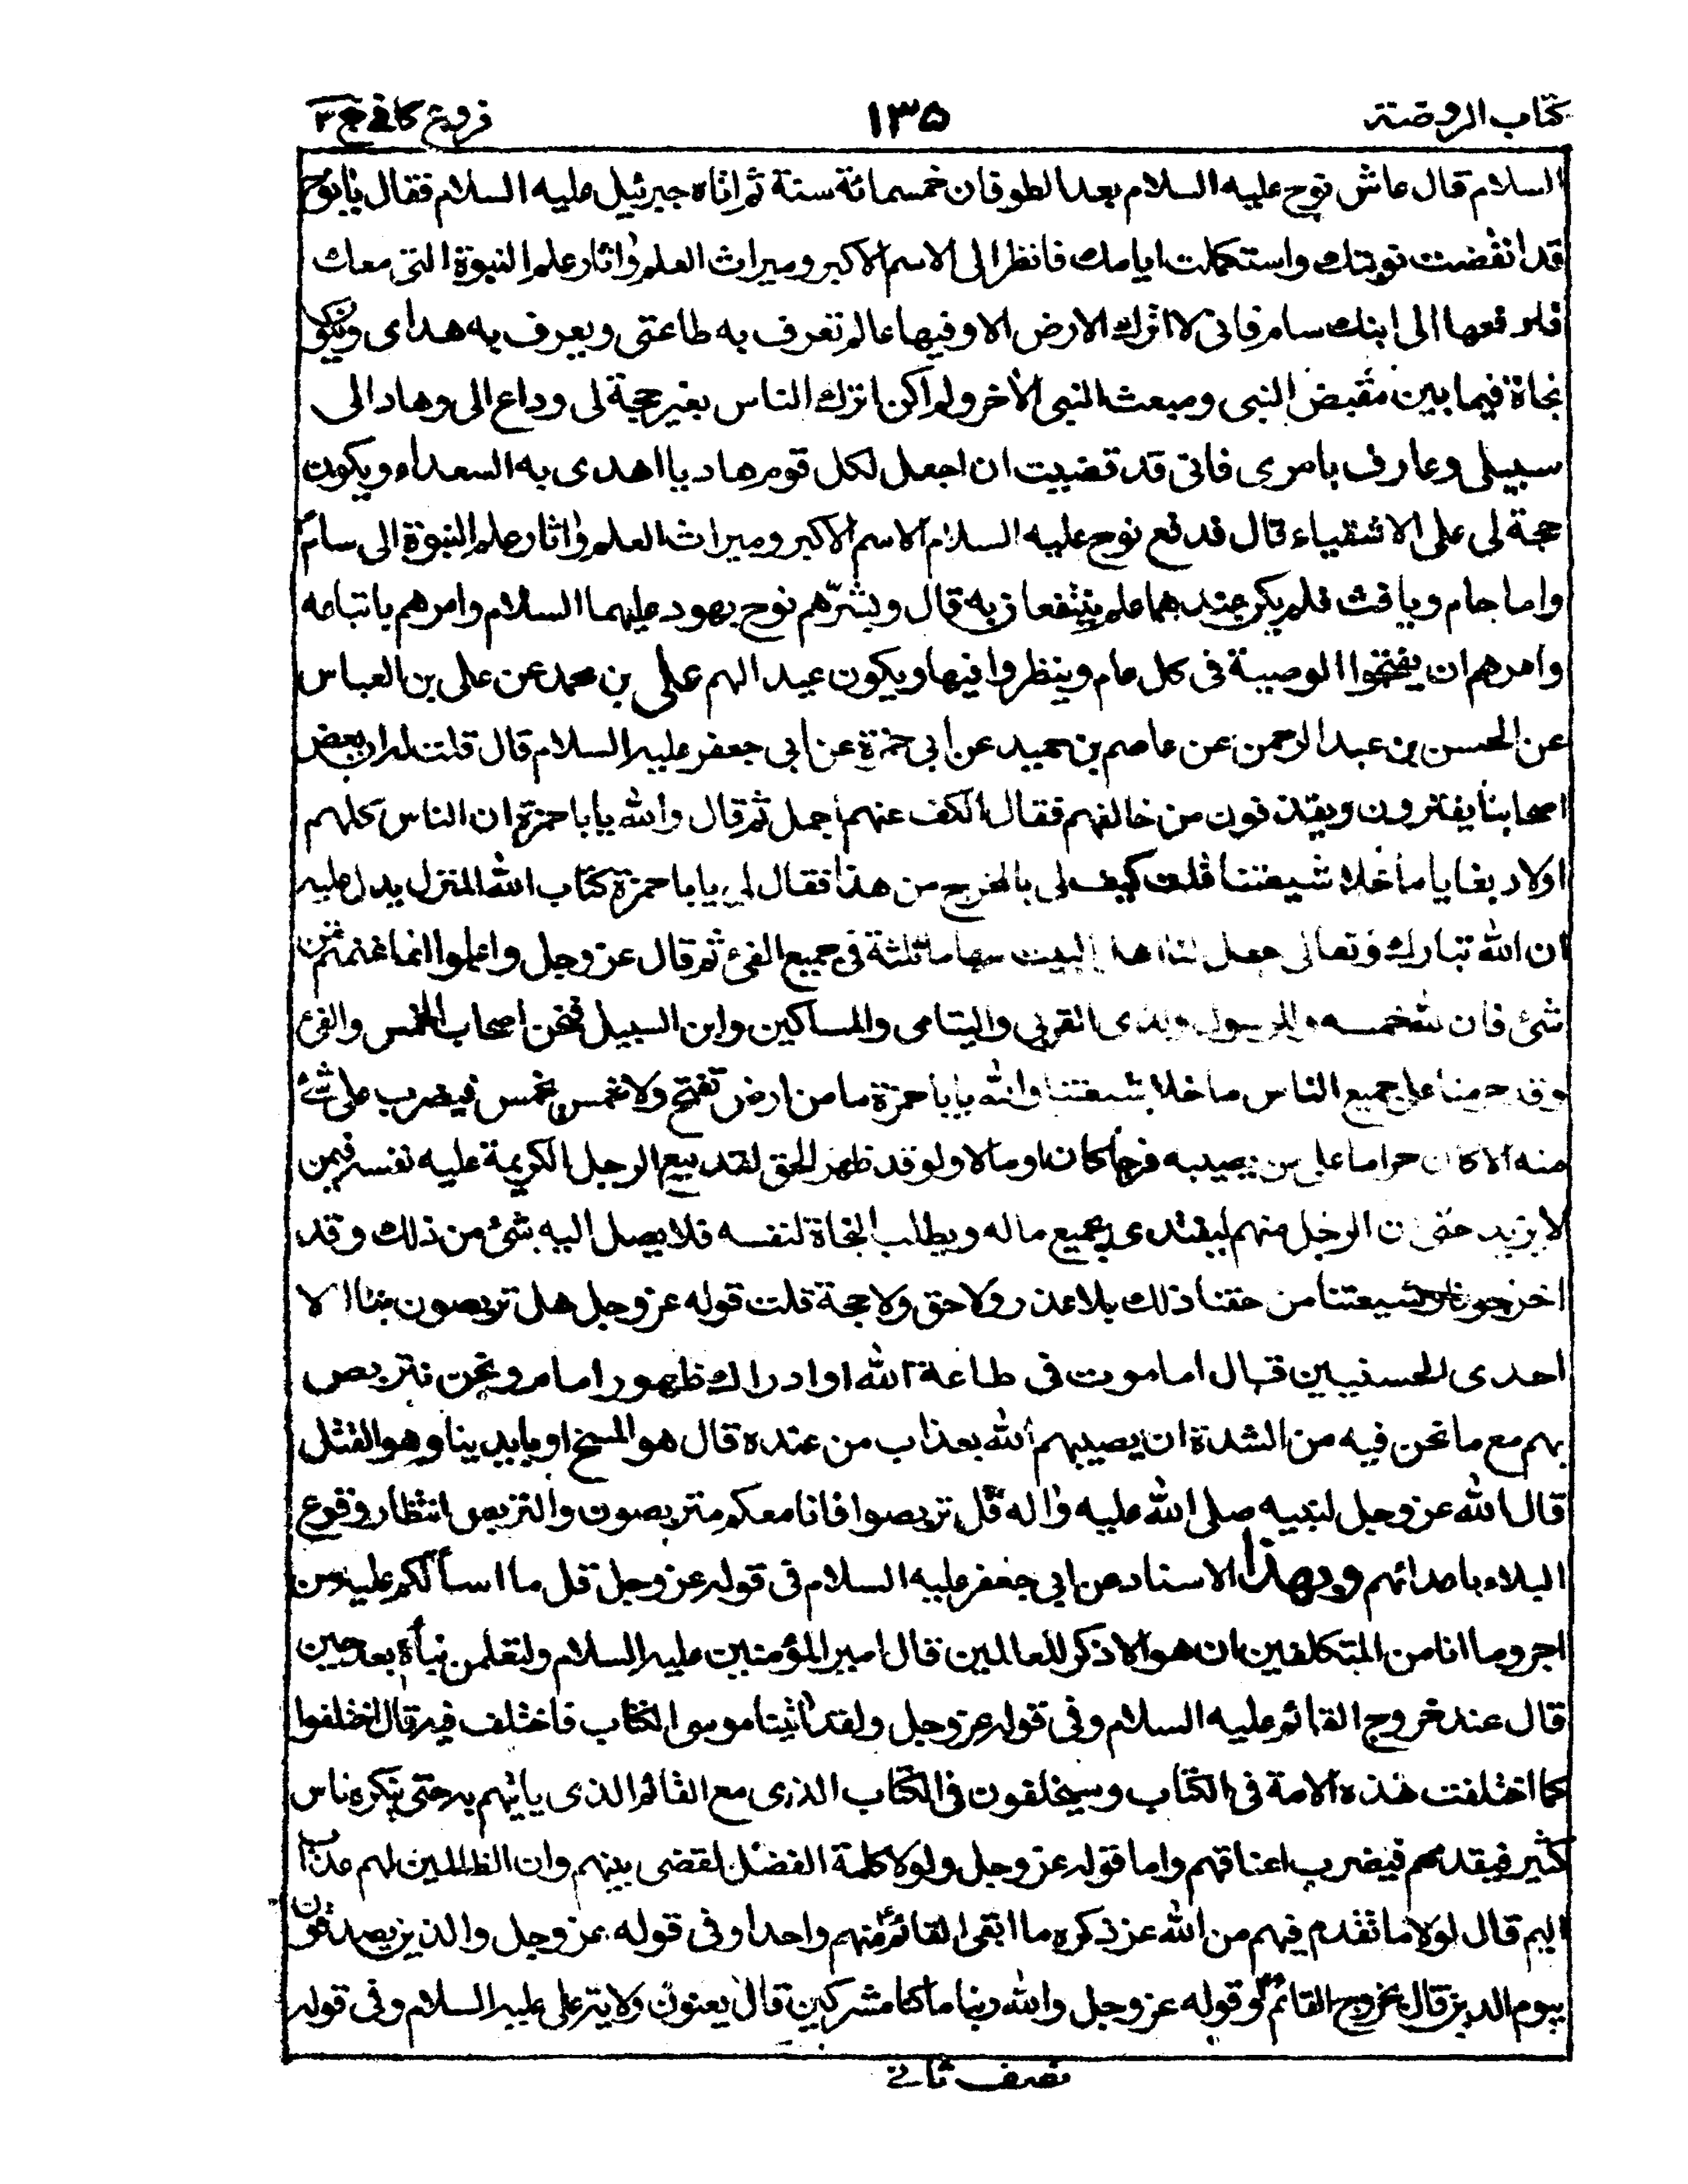 كتاب الروضة
١٣٥
فروع كافي ج ٣
السلام قال عاش نوح عليه السلام بعد الطوفان خمسمائة سنة ثم اتاه جبرئيل عليه السلام فقال يا نوح
قد انقضت نبوتك واستكملت ايامك فانظر الى الاسم الاكبر وميراث العلم واثار علم النبوة التي معك
فادفعها الى ابنك سام فاني لا اترك الارض الا وفيها عالم تعرف به طاعتي ويعرف به هداى ويكون
نجاة فيما بين مقبض النبى ومبعث النبى الاخر ولم اكن اترك الناس بغير حجة لى وداع الى وهاد الى
سبيلى وعارف بامرى فانى قد قضيت ان اجعل لكل قوم هاديا اهدى به السعداء ويكون
حجة لى على الاشقياء قال فدفع نوح عليه السلام الاسم الاكبر وميراث العلم واثار علم النبوة الى سام
واما حام ويافث فلم يكن عندهما علم ينتفعان به قال وبشرهم نوح بهود عليهما السلام وامرهم باتباعه
وامرهم ان يفتحوا الوصية فى كل عام وينظروا فيها ويكون عيدا لهم على بن محمد عن على بن العباس
عن الحسن بن عبد الرحمن عن عاصم بن حميد عن ابى حمزة عن ابى جعفر عليه السلام قال قلت له ان بعض
اصحابنا يفترون ويقذفون من خالفهم فقال الكف عنهم اجمل ثم قال والله يا با حمزة ان الناس كلهم
اولاد بغايا ما خلا شيعتنا قلت كيف لى بالمخرج من هذا فقال لى يا با حمزة كتاب الله المنزل يدل عليه
ان الله تبارك وتعالى جعل لنا اهل البيت سهاما ثلثة فى جميع الفئ ثم قال عز وجل واعلموا انما غنمتم من
شئ فان لله خمسه وللرسول ولذى القربى واليتامى والمساكين وابن السبيل فنحن اصحاب الخمس والفئ
وقد حرمنا على جميع الناس ما خلا شيعتنا والله يا با حمزة ما من ارض تفتح ولا خمس يخمس فيضرب على شئ
منه الا كان حراما على من يصيبه فرجا كان او مالا ولو قد ظهر الحق لقد بيع الرجل الكريمة عليه نفسه فيمن
لا يزيد حتى ان الرجل منهم ليفتدى بجميع ماله ويطلب النجاة لنفسه فلا يصل اليه شئ من ذلك وقد
اخرجونا وشيعتنا من حقنا ذلك بلا عذر ولا حق ولا حجة قلت قوله عز وجل هل تربصون بنا الا
احدى الحسنيين قال اما موت فى طاعة الله او ادراك ظهور امام ونحن نتربص
بهم مع ما نحن فيه من الشدة ان يصيبهم الله بعذاب من عنده قال هو المسخ او بايدينا وهو القتل
قال الله عز وجل لنبيه صلى الله عليه واله قل تربصوا فانا معكم متربصون والتربص انتظار وقوع
البلاء باعدائهم وبهذا الاسناد عن ابى جعفر عليه السلام فى قوله عز وجل قل ما اسألكم عليه من
اجر وما انا من المتكلفين ان هو الا ذكر للعالمين قال امير المؤمنين عليه السلام ولتعلمن نبأه بعد حين
قال عند خروج القائم عليه السلام وفى قوله عز وجل ولقد اتينا موسى الكتاب فاختلف فيه قال اختلفوا
كما اختلفت هذه الامة فى الكتاب وسيختلفون فى الكتاب الذى مع القائم الذى ياتيهم به حتى ينكره ناس
كثير فيقدمهم فيضرب اعناقهم واما قوله عز وجل ولولا كلمة الفصل لقضى بينهم وان الظالمين لهم عذاب
اليم قال لولا ما تقدم فيهم من الله عز ذكره ما ابقى القائم منهم واحدا وفى قوله عز وجل والذين يصدقون
بيوم الدين قال بخروج القائم وقوله عز وجل والله ربنا ما كنا مشركين قال يعنون ولاية على عليه السلام وفى قوله
نصف ثانى